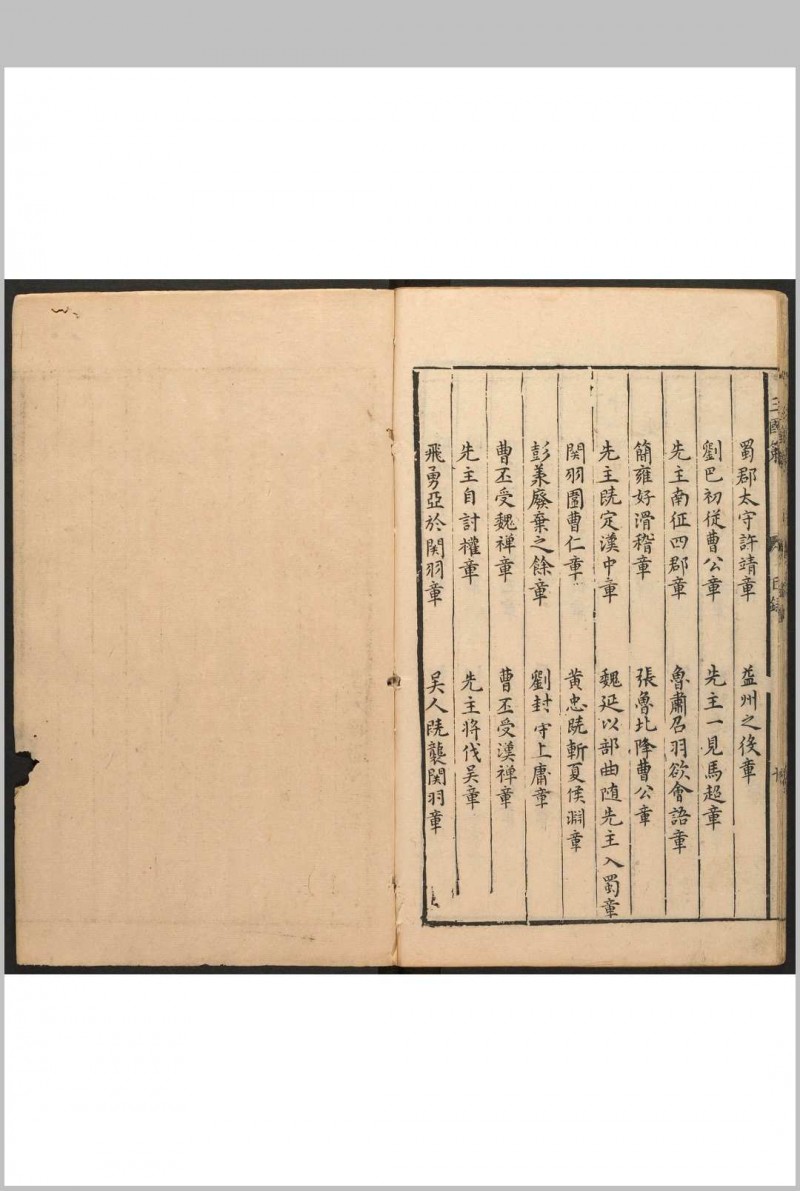 蜀郡太守許靖章　益州之後章
劉巴初從曹公章　先主一見馬超章
先主南征四郡章　魯肅召羽欲會語章
簡雍好滑稽章　張魯北降曹公章
先主既定漢中章　魏延以部曲随先主入蜀章
関羽圍曹仁章　黄忠既斬夏侯淵章
彭羕廢棄之餘章　劉封守上庸章
曹丕受魏禅章　曹丕受漢禅章
先主自討權章　先主将伐吴章
飛勇亞於関羽章　吴人既襲関羽章